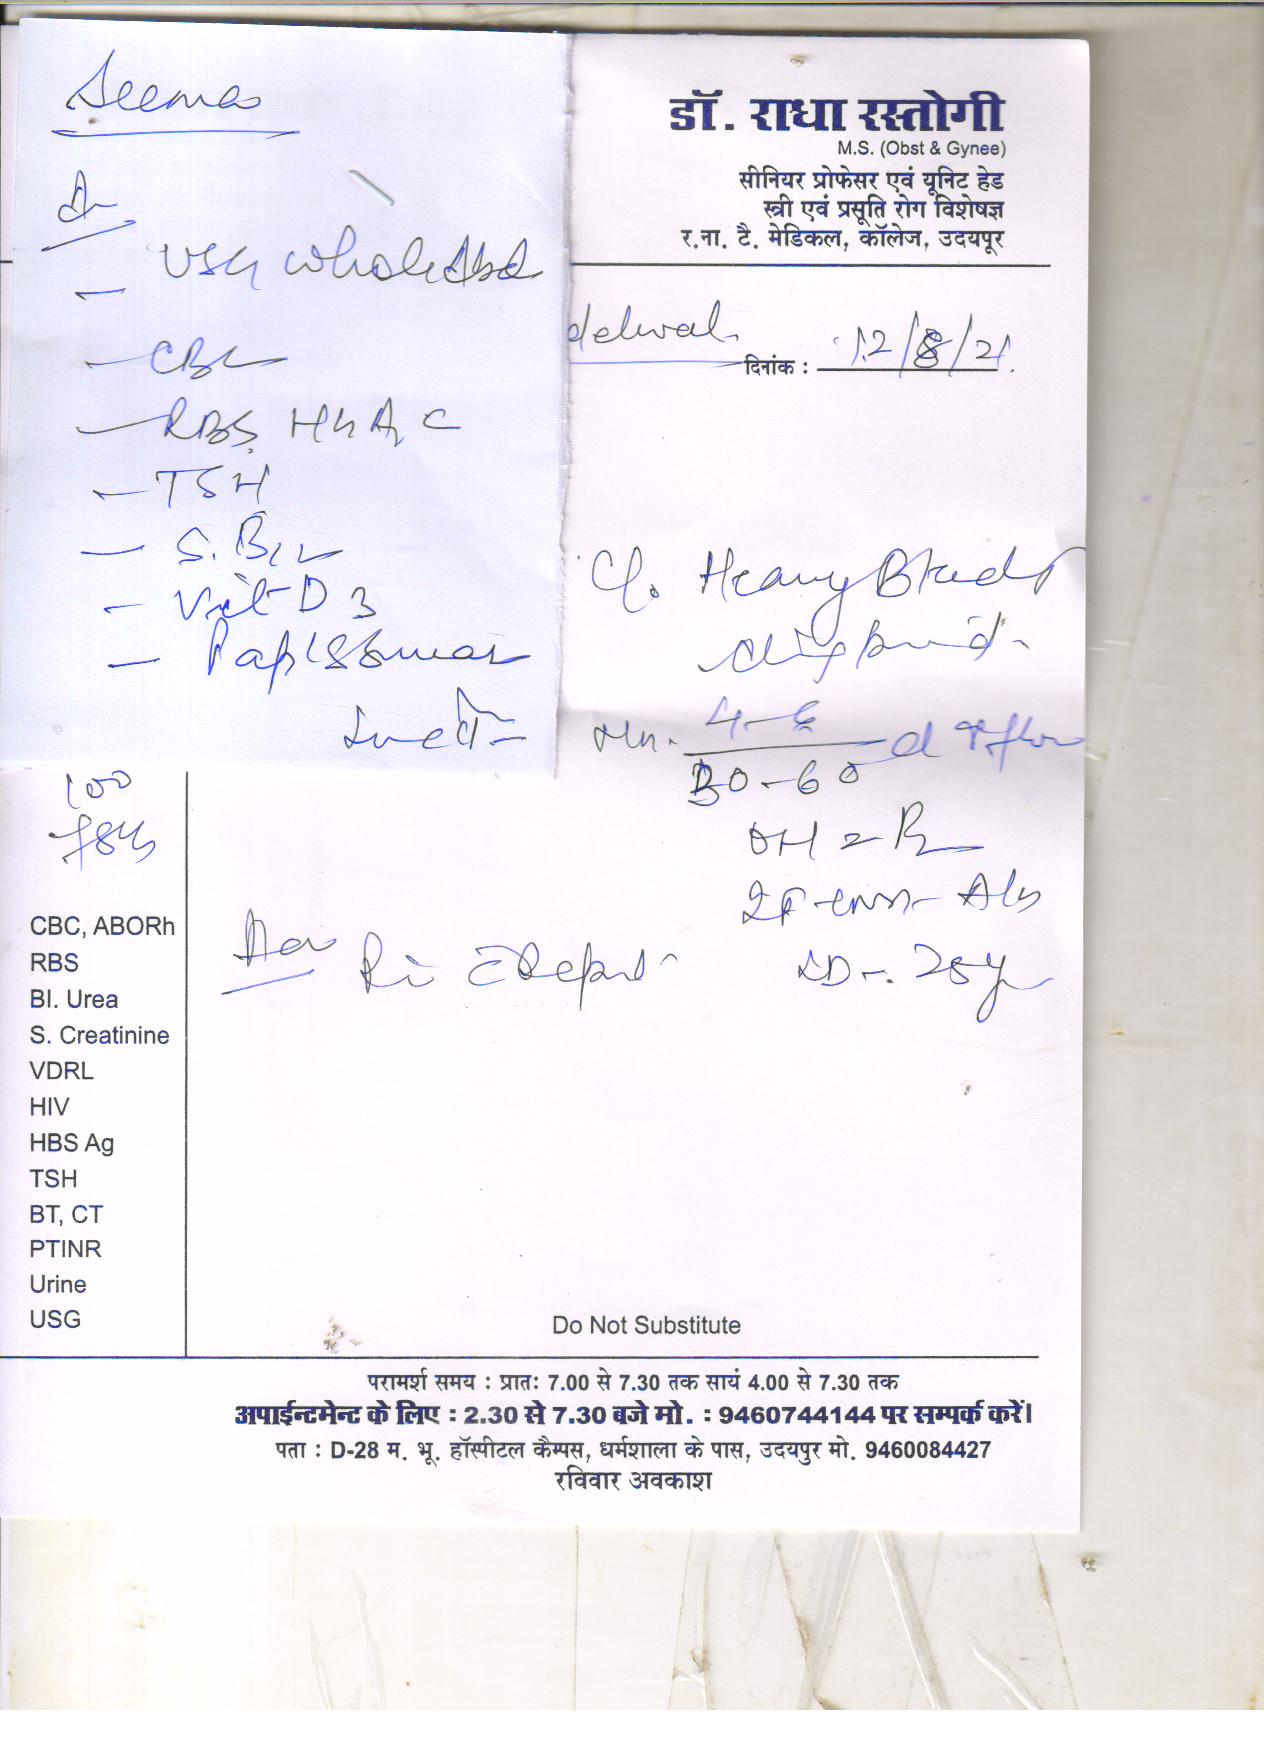 Seema
USG Whole Abd
- CBC
- RBS, HbA1C
- TSH
- S. B12
- Vit D 3
- Pap's Smear
डॉ. राधा रस्तोगी
M.S. (Obst & Gynee)
सीनियर प्रोफेसर एवं यूनिट हेड
स्त्री एवं प्रसूति रोग विशेषज्ञ
र.ना. टै. मेडिकल, कॉलेज, उदयपूर
delwal
दिनांक : 12/8/21
C/o Heavy Bleed
4-6
30-60
100
CBC, ABORh
RBS
Bl. Urea
S. Creatinine
VDRL
HIV
HBS Ag
TSH
BT, CT
PTINR
Urine
USG
Adv
LD - 25y
Do Not Substitute
परामर्श समय : प्रातः 7.00 से 7.30 तक सायं 4.00 से 7.30 तक
अपाईन्टमेन्ट के लिए : 2.30 से 7.30 बजे मो. : 9460744144 पर सम्पर्क करें।
पता : D-28 म. भू. हॉस्पीटल कैम्पस, धर्मशाला के पास, उदयपुर मो. 9460084427
रविवार अवकाश